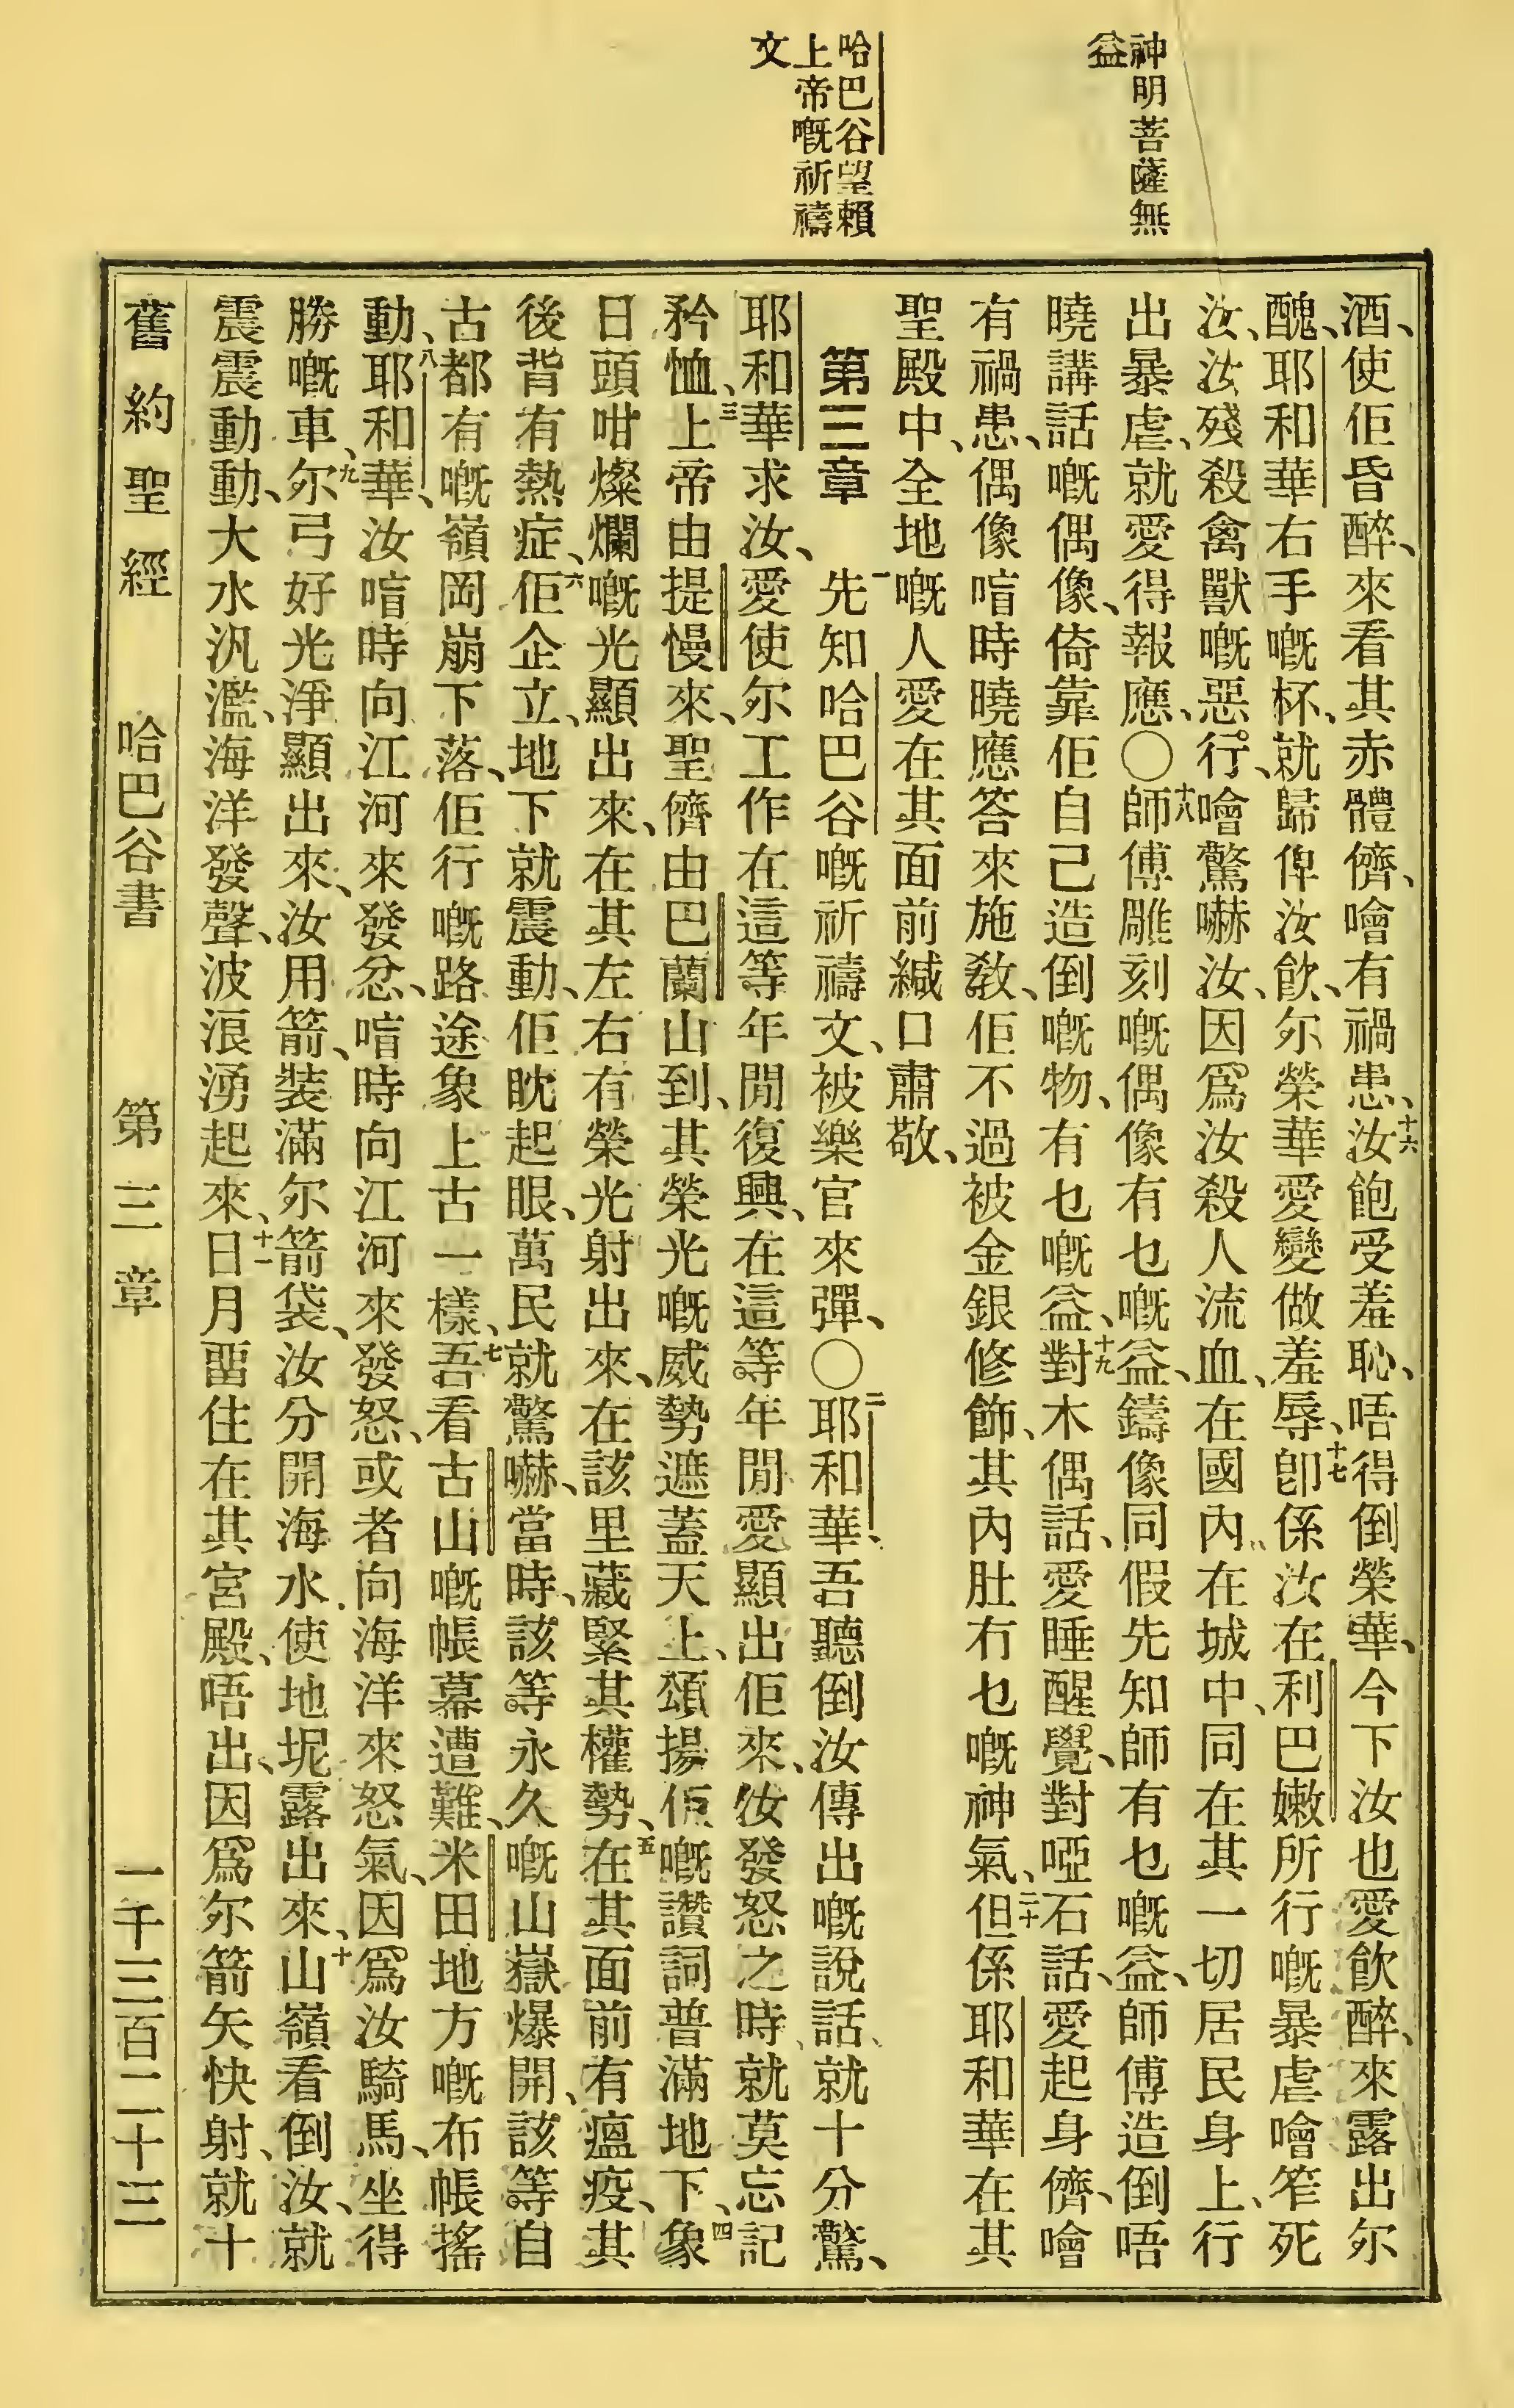 神明菩薩無
益
哈巴谷望賴
上帝嘅祈禱
文
酒、使佢昏醉、來看其赤體儕、噲有禍患、十六汝飽受羞恥、唔得倒榮華、今下汝也愛飲醉、來露出尔
醜、耶和華右手嘅杯、就歸俾汝飲、尔榮華愛變做羞辱、十七卽係汝在利巴嫩所行嘅暴虐噲笮死
汝、汝殘殺禽獸嘅惡行、噲驚嚇汝、因爲汝殺人流血、在國內、在城中、同在其一切居民身上、行
出暴虐、就愛得報應、〇十八師傅雕刻嘅偶像有乜嘅益、鑄像同假先知師有乜嘅益、師傅造倒唔
曉講話嘅偶像、倚靠佢自己造倒嘅物、有乜嘅益、十九對木偶話、愛睡醒覺、對啞石話、愛起身儕、噲
有禍患、偶像喑時曉應答來施敎、佢不過被金銀修飾、其內肚冇乜嘅神氣、二十但係耶和華在其
聖殿中、全地嘅人愛在其面前緘口肅敬、
第三章 一先知哈巴谷嘅祈禱文、被樂官來彈、〇二耶和華、吾聽倒汝傳出嘅說話、就十分驚、
耶和華求汝、愛使尔工作在這等年閒復興、在這等年閒愛顯出佢來、汝發怒之時、就莫忘記
矜恤、三上帝由提慢來、聖儕由巴蘭山到、其榮光嘅威勢遮蓋天上、頌揚佢嘅讚詞普滿地下、四象
日頭咁燦爛嘅光顯出來、在其左右有榮光射出來、在該里藏緊其權勢、五在其面前有瘟疫、其
後背有熱症、六佢企立、地下就震動、佢眈起眼、萬民就驚嚇、當時、該等永久嘅山嶽爆開、該等自
古都有嘅嶺岡崩下落、佢行嘅路途象上古一樣、七吾看古山嘅帳幕遭難、米田地方嘅布帳搖
動、八耶和華、汝喑時向江河來發忿、喑時向江河來發怒、或者向海洋來怒氣、因爲汝騎馬、坐得
勝嘅車、九尔弓好光淨顯出來、汝用箭、裝滿尔箭袋、汝分開海水、使地坭露出來、十山嶺看倒汝、就
震震動動、大水汎濫、海洋發聲、波浪湧起來、十一日月畱住在其宮殿、唔出、因爲尔箭矢快射、就十
舊約聖經 哈巴谷書 第三章 一千三百二十三